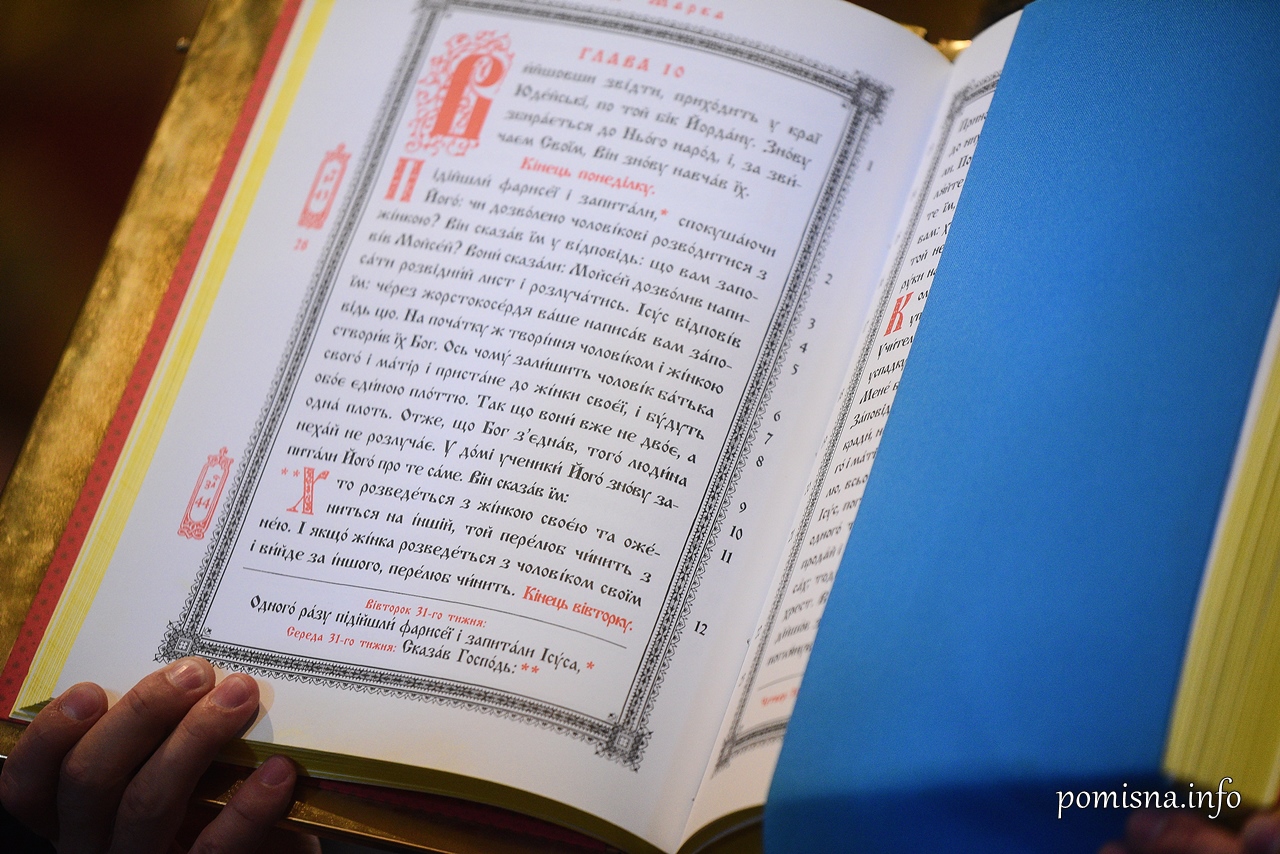 Марка
ГЛАВА 10
Вийшовши зві́дти, прихо́дить у краї́
Юде́йські, по той бік Йорда́ну. Зно́ву
збира́ється до Ньо́го наро́д, і, за зви-
чаєм Свої́м, Він зно́ву навча́в їх.
Кіне́ць понеді́лку.
Підійшли́ фарисе́ї і запита́ли,* спокуша́ючи
Його́: чи дозво́лено чолові́кові розво́дитися з
жі́нкою? Він сказа́в їм у ві́дповідь: що вам запо-
ві́в Мойсе́й? Вони́ сказа́ли: Мойсе́й дозво́лив напи-
са́ти розві́дний лист і розлуча́тись. Ісу́с відпові́в
їм: че́рез жорстокосе́рдя ва́ше написа́в вам за́по-
відь цю. На поча́тку ж творі́ння чолові́ком і жі́нкою
створи́в їх Бог. Ось чому́ зали́шить чолові́к ба́тька
свого́ і ма́тір і приста́не до жі́нки своє́ї, і бу́дуть
обо́є єди́ною пло́ттю. Так що вони́ вже не дво́є, а
одна́ плоть. Отже, що Бог з’єдна́в, того́ люди́на
неха́й не розлуча́є. У до́мі ученики́ Його́ зно́ву за-
пита́ли Його́ про те са́ме. Він сказа́в їм:
**Хто розведе́ться з жі́нкою своє́ю та оже́-
ниться на і́ншій, той пере́люб чи́нить з
не́ю. І якщо́ жі́нка розведе́ться з чолові́ком свої́м
і ви́йде за і́ншого, пере́люб чи́нить. Кіне́ць вівто́рку.
Вівторок 31-го тижня:
Одного́ ра́зу підійшли́ фарисе́ї і запита́ли Ісу́са,*
Середа 31-го тижня: Сказа́в Госпо́дь:**
28
44
1
2
3
4
5
6
7
8
9
10
11
12
pomisna.info